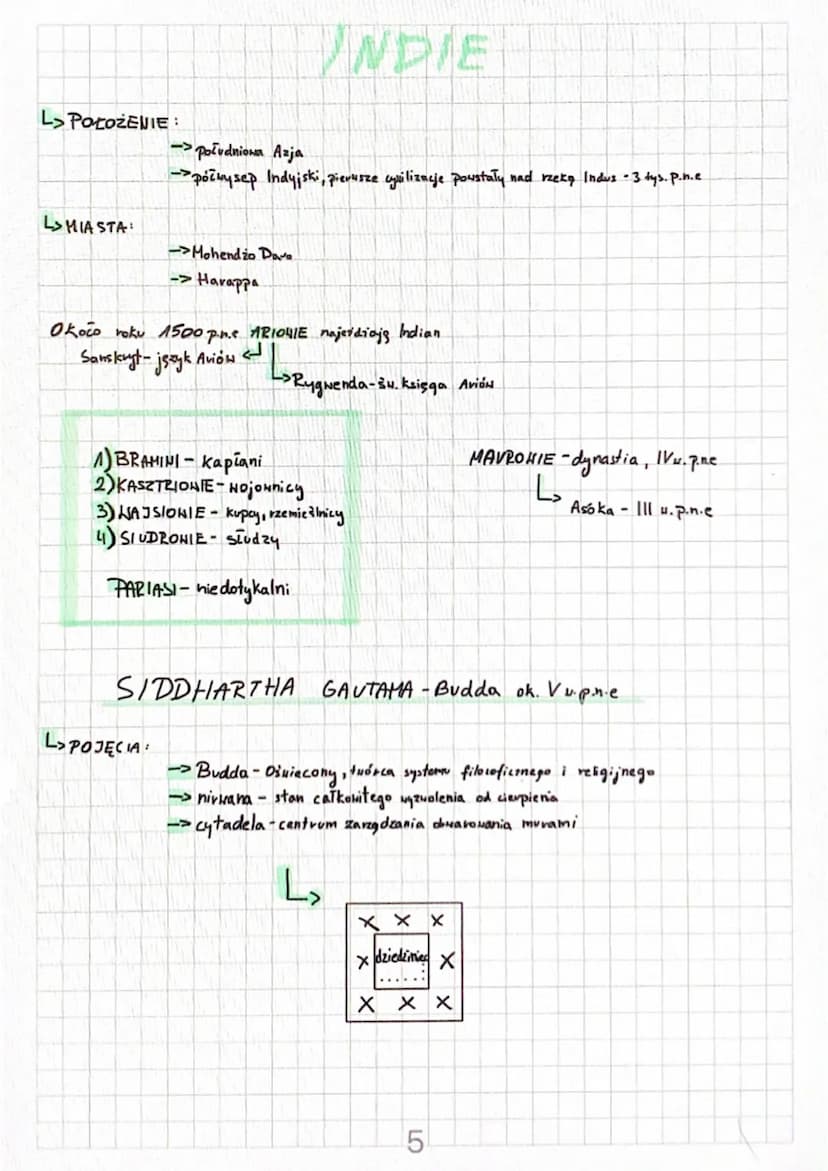 INDIE
↳ POŁOŻENIE:
→ południowa Azja
→ półwysep Indyjski, pierwsze cywilizacje powstały nad rzeką Indus - 3 tys. p.n.e
↳ MIASTA:
→ Mohendżo Daro
→ Harappa
Około roku 1500 p.n.e ARIOWIE najeżdżają Indian
Sanskryt - język Ariów ↵
↳ Rygwenda - św. księga Ariów
1) BRAMINI - kapłani
2) KASZTRIOWIE - wojownicy
3) WAJSIOWIE - kupcy, rzemieślnicy
4) SIUDROWIE - słudzy
PARIASI - niedotykalni
MAUROWIE - dynastia, IV w. p.n.e
↳ Asóka - III w. p.n.e
SIDDHARTHA GAUTAMA - Budda ok. V w. p.n.e
↳ POJĘCIA:
→ Budda - Oświecony, twórca systemu filozoficznego i religijnego
→ nirwana - stan całkowitego wyzwolenia od cierpienia
→ cytadela - centrum zarządzania otwarowania murami
↳
X X X
X dziedziniec X
X X X
5